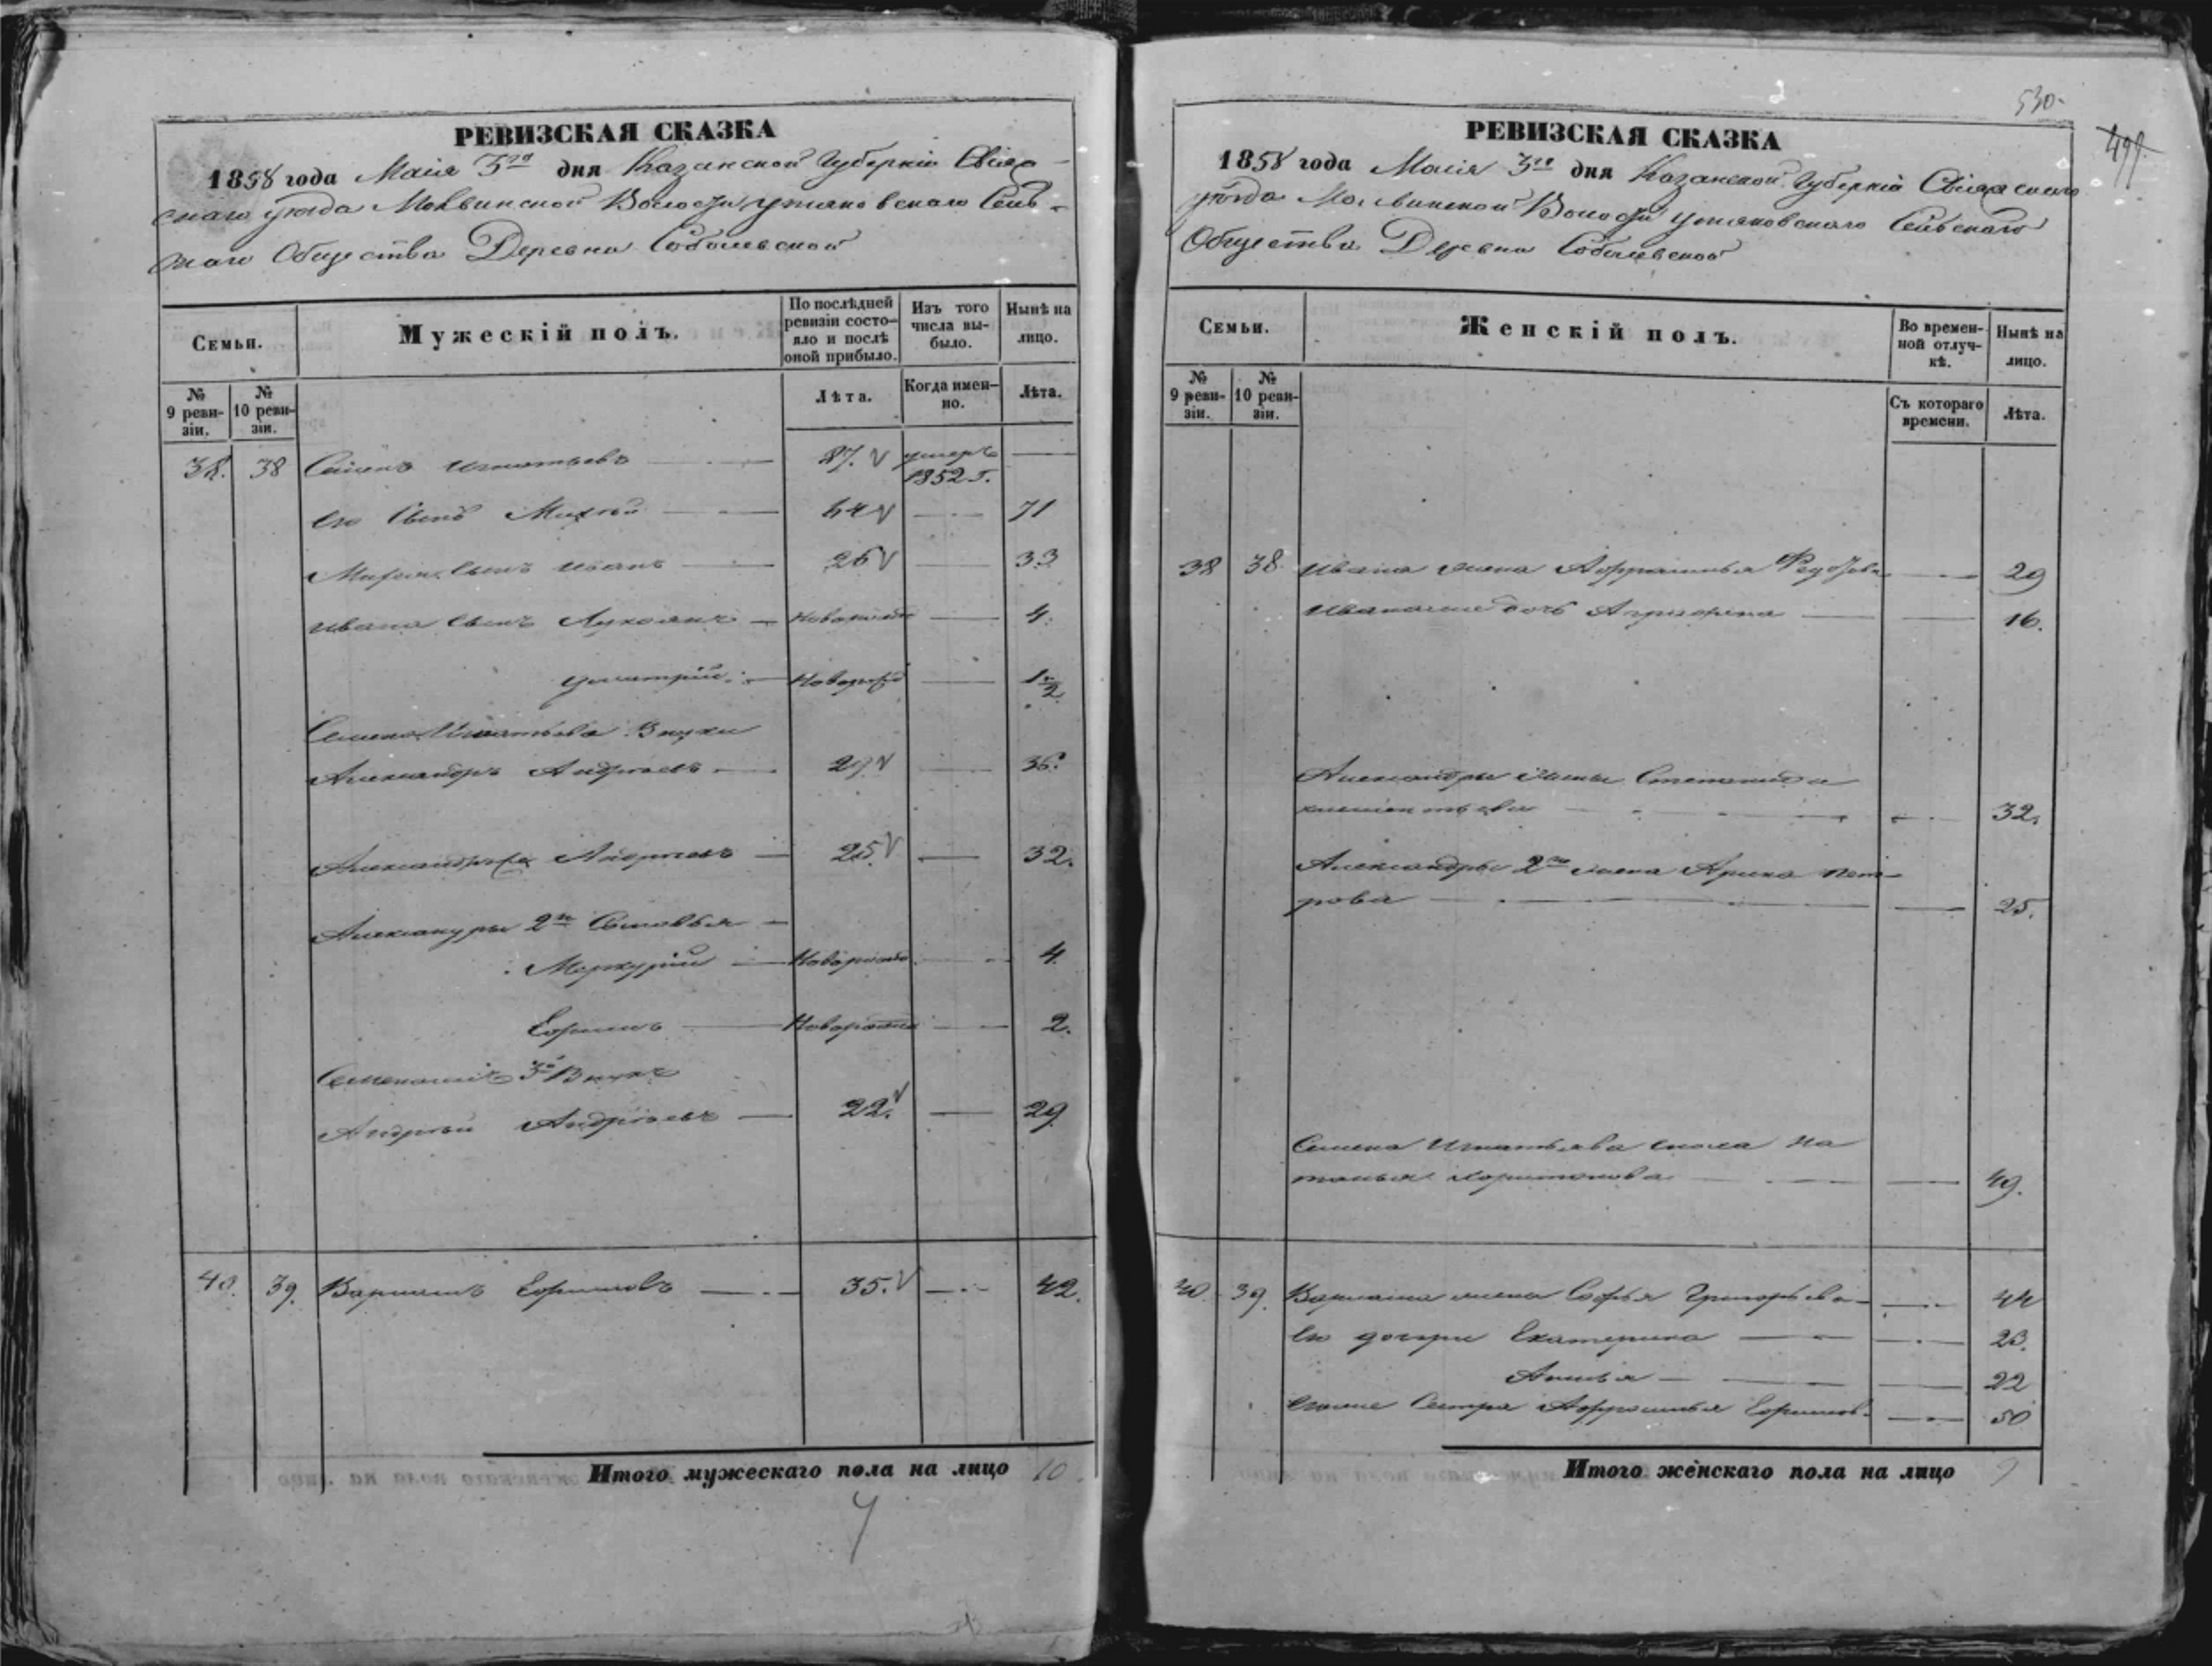 РЕВИЗСКАЯ СКАЗКА
1858 года Маія 3го дня Казанской Губерніи Свіяж-
скаго уѣзда Молвинской Волости Сель-
скаго Общества Деревни Соболевской
Семьи.
Мужескій полъ.
По послѣдней ревизіи состо-яло и послѣ оной прибыло.
Изъ того числа вы-было.
Нынѣ на лицо.
№ 9 реви-зіи.
№ 10 реви-зіи.
Лѣта.
Когда имен-но.
Лѣта.
38. 38 Семенъ Игнатьевъ 87. умеръ
1852 г.
Его Сынъ 64 71
Сынъ Иванъ 26 33
Ивана Сынъ Лукоянъ Новорожд 4.
Дмитрій Новорожд 1/2
Семена Игнатьева Внуки
Александръ Андреевъ 29 36.
Александръ 2й Андреевъ 25. 32.
Александры 2го Сыновья
Меркурій Новорожд 4.
Ефимъ Новорожд 2.
3й Внукъ
Андрей Андреевъ 22. 29
40. 39. Варламъ Ефимовъ 35. 42.
Итого мужескаго пола на лицо 10.
530.
499.
РЕВИЗСКАЯ СКАЗКА
1858 года Маія 3го дня Казанской Губерніи Свіяжскаго
уѣзда Молвинской Волости Сельскаго
Общества Деревни Соболевской
Семьи.
Женскій полъ.
Во времен-ной отлуч-кѣ.
Нынѣ на лицо.
№ 9 реви-зіи.
№ 10 реви-зіи.
Съ котораго времени.
Лѣта.
38 38. Ивана жена Афросинья 29
дочь 16.
Александры жена Степанида
32.
Александры 2го жена Арина Пет-
рова 25.
Семена Игнатьева сноха На
талья Харитонова 49.
40. 39. Варлама жена Софья Григорьева 44
Его дочери Екатерина 23.
22
Сестра Афросинья Ефимов. 50
Итого женскаго пола на лицо 9